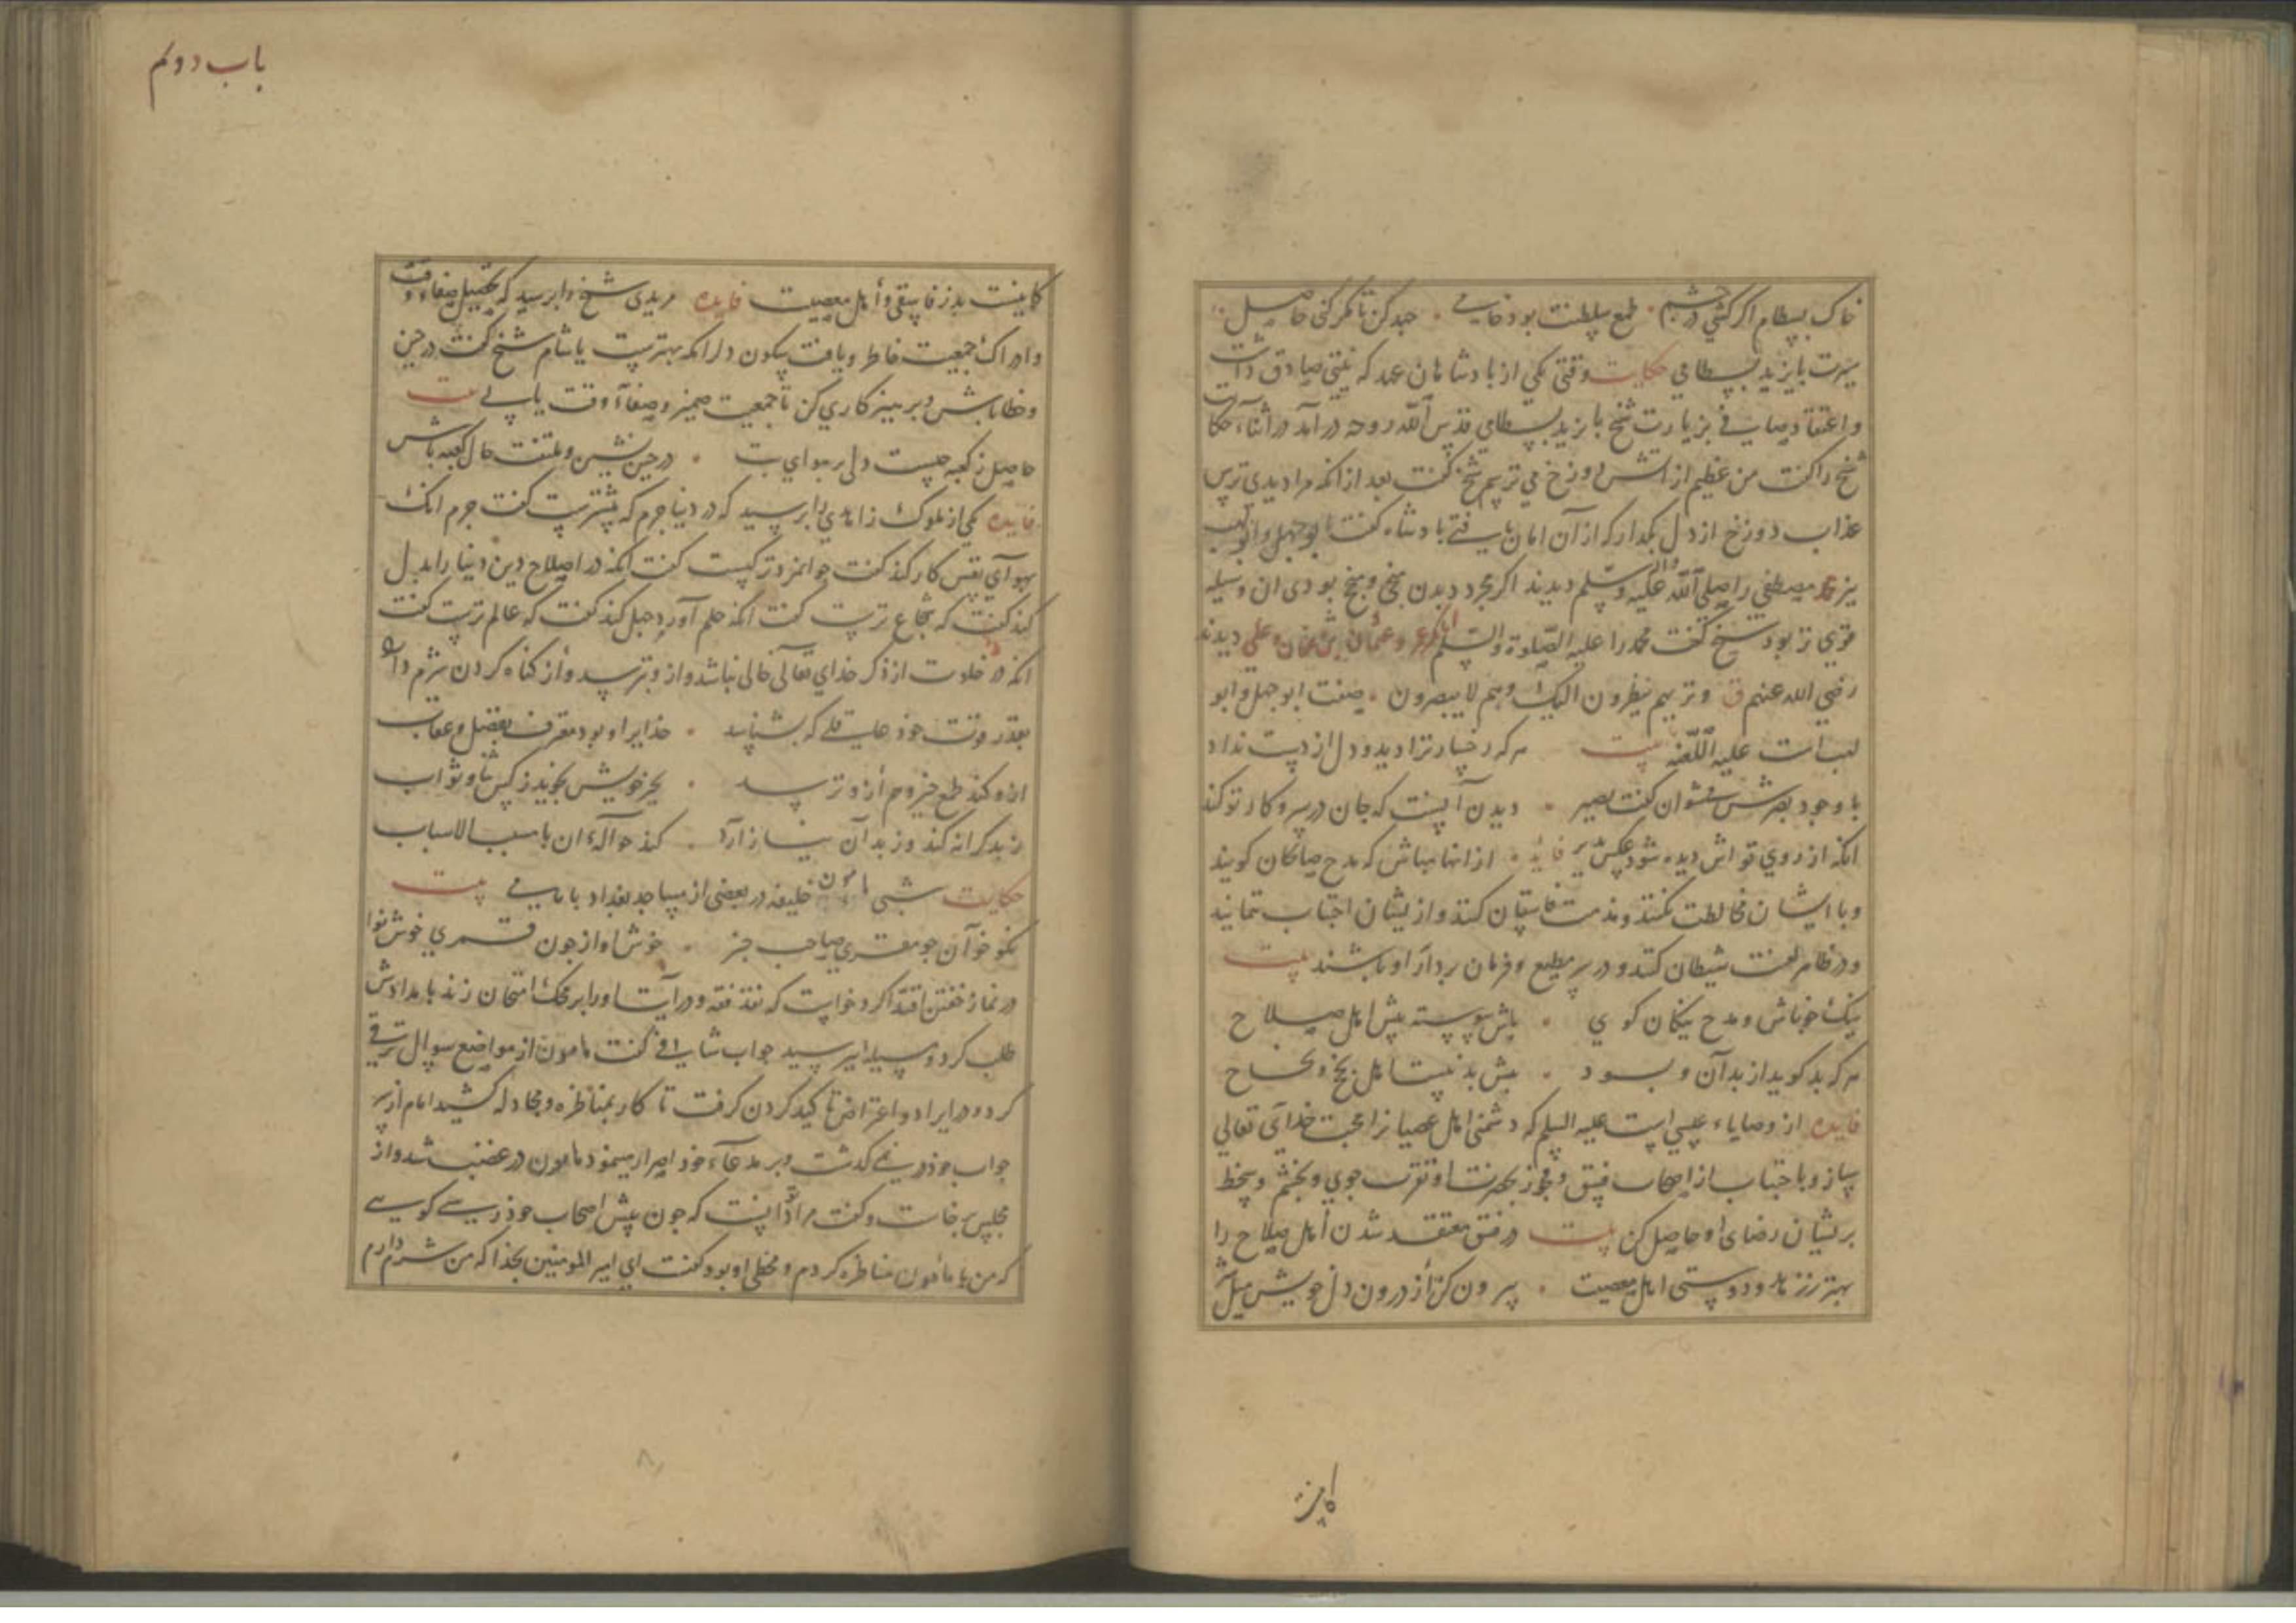 خاک بسطام اگر کشی در چشم . طمع سلطنت بود خامی . جهد کن تا مگر کنی حاصل
سیرت بایزید بسطامی حکایت وقتی یکی از بادشاهان عهد که نیتی صادق داشت
و اعتقاد صافی بزیارت شیخ بایزید بسطامی قدس الله روحه در آمد در اثناء
شیخ را گفت من عظیم از آتش دوزخ می ترسم شیخ گفت بعد از انکه مرا دیدی ترس
عذاب دوزخ از دل بگذار که از آن امان یافتی بادشاه گفت ابوجهل و ابولهب
نیز محمد مصطفی را صلی الله علیه وآله وسلم دیدند اگر مجرد دیدن بودی ان وسیله
قوی تر بود شیخ گفت محمد را علیه الصلوة والسلم ابابکر و عمر و عثمان و علی دیدند
رضی الله عنهم ق وتریهم ینظرون الیک وهم لا یبصرون . صفت ابوجهل و ابو
لهب است علیه اللعنه بیت هر که رخسار ترا دید و دل از دست نداد
با وجود بصرش نتوان گفت بصیر . دیدن آنست که جان در سر و کار تو کند
انکه از روی تواش دیده شود فایده . از انها مباش که مدح صالحان گویند
و با ایشان مخالطت نکنند و مذمت فاسقان کنند و از یشان اجتناب ننمایند
و در ظاهر لعنت شیطان کنند و در سر مطیع و فرمان بردار او باشند بیت
نیک خو باش و مدح نیکان کوی . باش پیوسته پیش اهل صلاح
هر که بد کوید از بدآن و بسود . پیش بد نیست اهل
فایده از وصایاء عیسی است علیه السلم که دشمنی اهل عصیانرا محبت خدای تعالی
ساز و باجتناب از اصحاب فسق و فجور بحضرت او تقرب جوی و بخشم و سخط
بریشان رضای او حاصل کن بیت در فسق معتقد شدن اهل صلاح را
بهتر ززهد و دوستی اهل معصیت . بیرون کن از درون دل خویش میل
باب دویم
کاینست بدز فاسقی و اهل معصیت فایده مریدی شیخ را بر سید که تحصیل صفاء وقت
و ادراک جمعیت خاطر و یافت سکون دل را مکه بهترست یا شام شیخ گفت در چین
و خطا باش و برهیزکاری کن تا جمعیت ضمیر و صفآء وقت یابی بیت
حاصل ز کعبه چیست دلی بر هوای بت . در چین نشین و ملتفت حال کعبه باش
فایده یکی از ملوک زاهدی را بر سید که در دنیا جرم که بیشترست گفت جرم انک
بهوآی نفس کار کند گفت جوانمردتر کیست گفت انکه در اصلاح دین دنیا را بدل
کند گفت که شجاع ترست گفت انکه حلم آورد جهل کند گفت که عالم ترست گفت
انکه در خلوت از ذکر خدای تعالی خالی نباشد و از وی ترسد و از کناه کردن شرم دارد
بقدر قوت خود عاقلی که بشناسد . خدایرا و بود معترف بفضل و عقاب
ازو کند طمع خیر و هم ازو ترسد . بخر خویش نجوید ز کس ثنا و ثواب
زبد کرانه کند وز بدآن نیازارد . کند حوآلهٔ ان با مسبب الاسباب
حکایت شبی مامون خلیفه در بعضی از مساجد بغداد با امامی بیت
نکو خوآن جو مقری صاحب جز . خوش آواز جون قمری خوش نوا
در نماز خفتن اقتدا کرد خواست که نقد فقه و درایت او را بر محک امتحان زند بامدادش
طلب کرد و مسیله‌ای برسید جواب شافی گفت مامون از مواضع سوال ترقی
کرد و در ایراد و اعتراض تاکید کردن گرفت تا کار بمناظره و مجادله کشید امام از سر
جواب خود در نمی گذشت و بر مدعآء خود اصرار مینمود مامون در غضب شد و از
مجلس برخاست و گفت مرادت آنست که جون پیش اصحاب خود رسی گویی
که من با مامون مناظره کردم و مخطی او بود گفت ای امیر المومنین بخدا که من شرم دارم